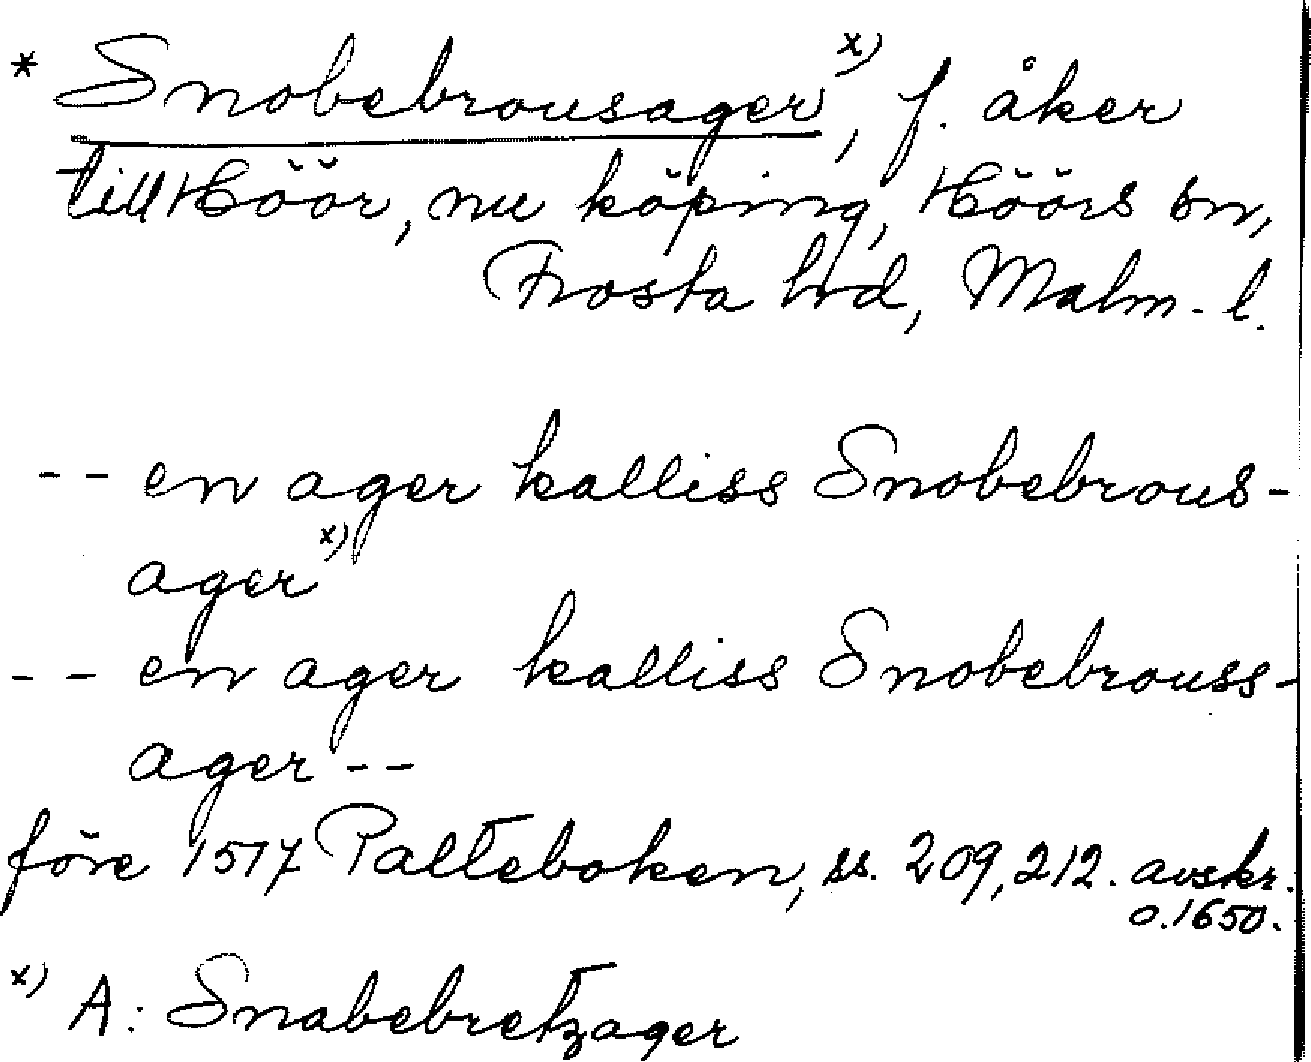 * Snobebrousager x), f. åker
till Höör, nu köping, Höörs sn,
Frosta hd, Malm. l.
-- en ager kalliss Snobebrous-
ager x)
-- en ager kalliss Snobebrouss-
ager --
före 1517 Palteboken, ss. 209, 212. avskr.
o. 1650.
x) A: Snabebretzager